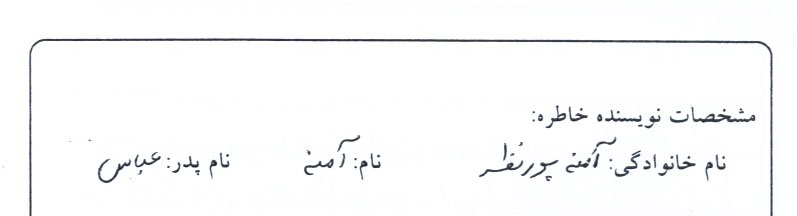 مشخصات نویسنده خاطره:
نام خانوادگی: آمنه پورنظر نام: آمنه نام پدر: عباس